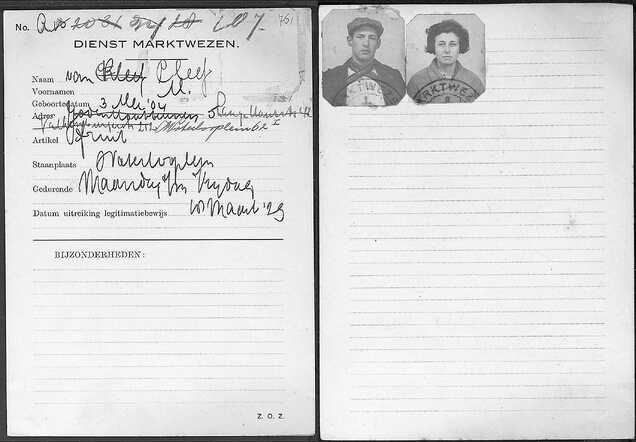 No. 107. 761
DIENST MARKTWEZEN.
Naam van Cleef
Voornamen M.
Geboortedatum 3 Mei '04
Adres
Waterlooplein 62 I
Artikel Fruit
Staanplaats Waterlooplein
Gedurende Maandag t/m Vrijdag
Datum uitreiking legitimatiebewijs 10 Maart '29
BIJZONDERHEDEN:
Z. O. Z.
MARKTWE
MARKTWE